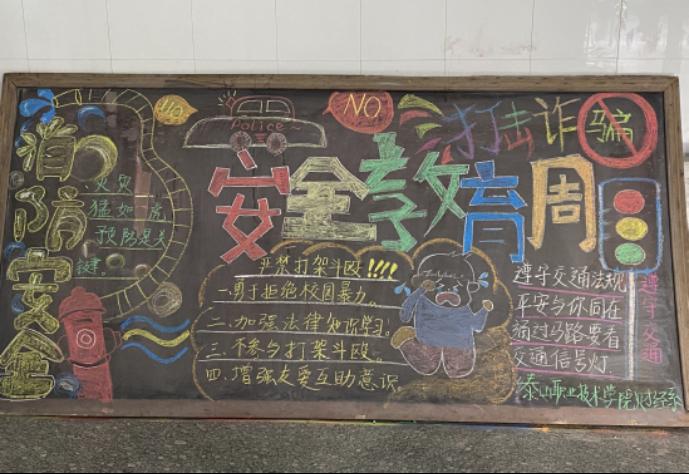 消防安全
火灾
猛如虎
预防是关
NO
Police
NO
打击诈骗
安全教育周
严禁打架斗殴!!!!
一.勇于拒绝校园暴力。
二.加强法律知识学习。
三.不参与打架斗殴。
四.增强友爱互助意识
遵守交通法规
平安与你同在
通过马路要看
交通信号灯.
遵守交通
泰山职业技术学院财经系